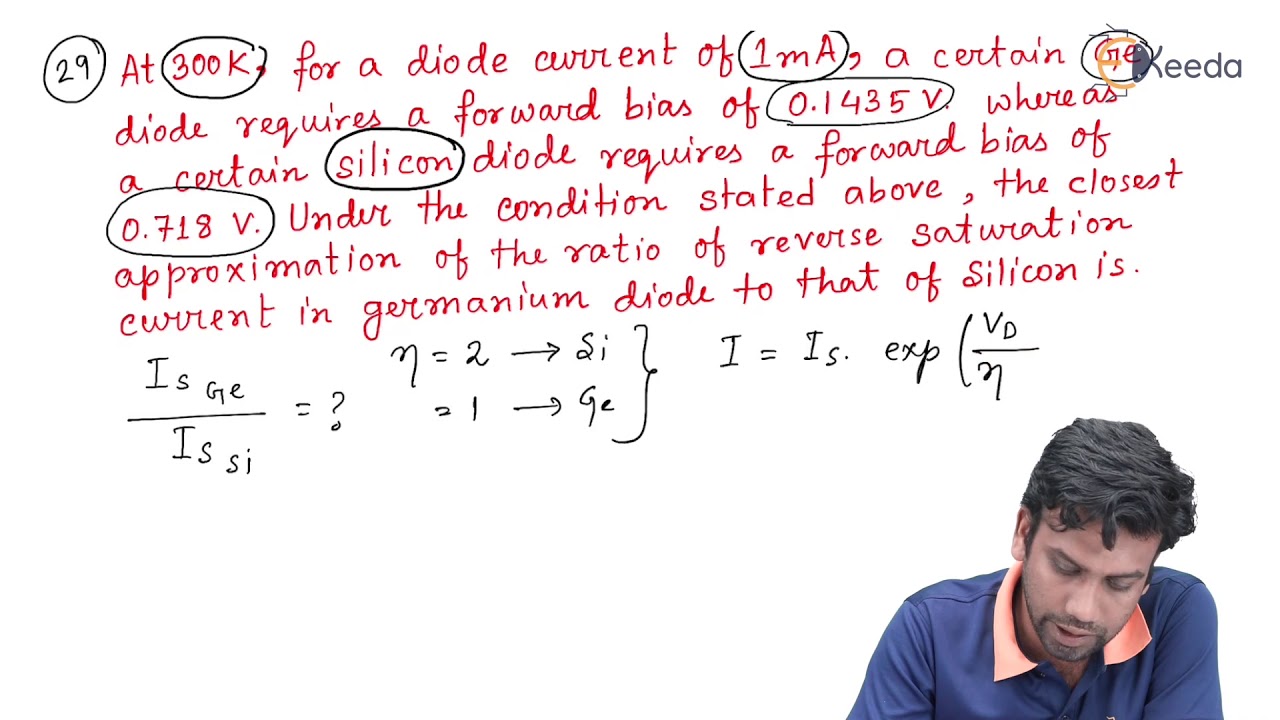 29 At 300K, for a diode current of 1mA, a certain Ge
Keeda
diode requires a forward bias of 0.1435 V. whereas
a certain silicon diode requires a forward bias of
0.718 V. Under the condition stated above, the closest
approximation of the ratio of reverse saturation
current in germanium diode to that of silicon is.
I_S Ge / I_S Si = ?
η = 2 → Si
= 1 → Ge
I = I_S. exp (V_D / η